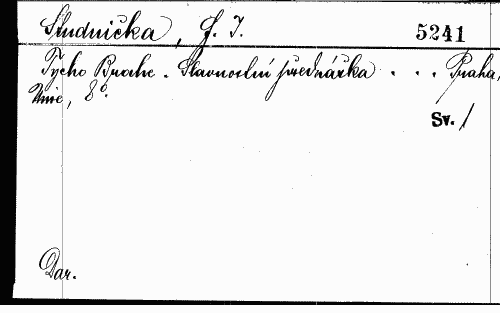 Studnička, F. I. 5241
Tycho Brahe. Slavnostní přednáška . . . Praha,
Unie, 8°.
Sv. 1
Dar.